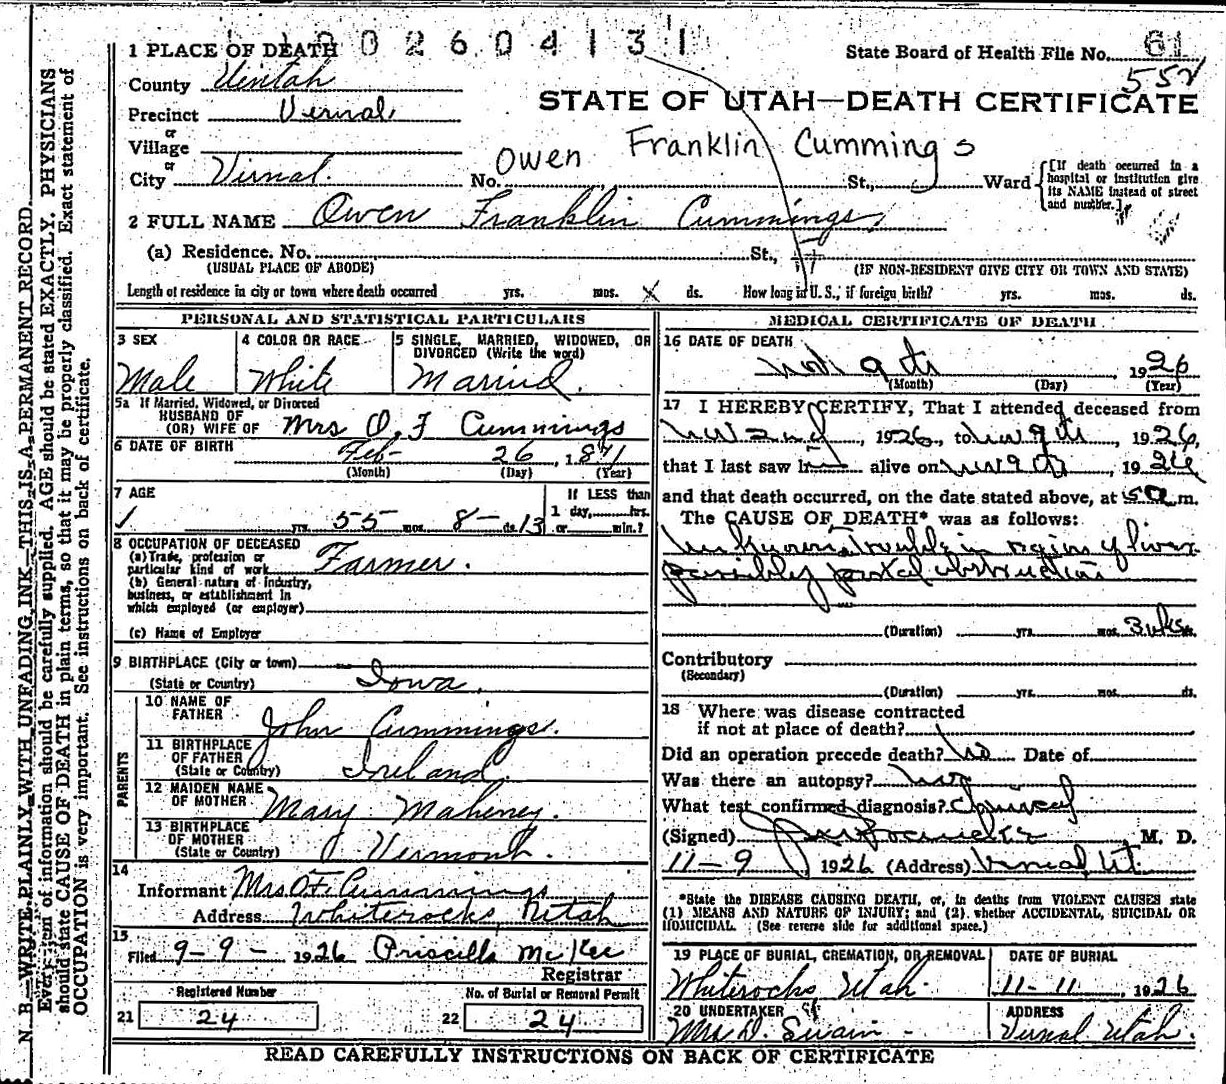 1002604131
1 PLACE OF DEATH
State Board of Health File No. 61
552
County Uintah
STATE OF UTAH—DEATH CERTIFICATE
Precinct Vernal
or
Village
or
City Virnal. No. St., Ward
Owen Franklin Cummings
[If death occurred in a hospital or institution give its NAME instead of street and number.]
2 FULL NAME Owen Franklin Cummings
(a) Residence. No. St.,
(USUAL PLACE OF ABODE) (IF NON-RESIDENT GIVE CITY OR TOWN AND STATE)
Length of residence in city or town where death occurred yrs. mos. X ds. How long in U. S., if foreign birth? yrs. mos. ds.
PERSONAL AND STATISTICAL PARTICULARS
3 SEX
Male
4 COLOR OR RACE
White
5 SINGLE, MARRIED, WIDOWED, OR DIVORCED (Write the word)
Married.
5a If Married, Widowed, or Divorced
HUSBAND OF
(OR) WIFE OF Mrs O, F Cummings
6 DATE OF BIRTH Feb- 26, 1871
(Month) (Day) (Year)
7 AGE
yrs. 55 mos. 8- ds. 13
If LESS than
1 day, hrs.
or min.?
8 OCCUPATION OF DECEASED
(a) Trade, profession or
particular kind of work Farmer.
(b) General nature of industry,
business, or establishment in
which employed (or employer)
(c) Name of Employer
9 BIRTHPLACE (City or town)
(State or Country) Iowa.
PARENTS
10 NAME OF
FATHER John Cummings.
11 BIRTHPLACE
OF FATHER
(State or Country) Ireland.
12 MAIDEN NAME
OF MOTHER Mary Maheney.
13 BIRTHPLACE
OF MOTHER
(State or Country) Vermont.
14
Informant Mrs O.F. Cummings
Address Whiterocks, Utah
15
Filed 9-9-1926 Priscilla McKee
Registrar
Registered Number
21 24
No. of Burial or Removal Permit
22 24
MEDICAL CERTIFICATE OF DEATH
16 DATE OF DEATH
Nov 9th, 1926
(Month) (Day) (Year)
17 I HEREBY CERTIFY, That I attended deceased from
Nov 2nd, 1926, to Nov 9th, 1926,
that I last saw h alive on Nov 9th, 1926
and that death occurred, on the date stated above, at 5a m.
The CAUSE OF DEATH* was as follows:
Unknown Trouble in region of liver
possibly portal obstruction
(Duration) yrs. mos. 3 wks.
Contributory
(Secondary)
(Duration) yrs. mos. ds.
18 Where was disease contracted
if not at place of death?
Did an operation precede death? No Date of
Was there an autopsy?
What test confirmed diagnosis? Clinical
(Signed) M. D.
11-9 1926 (Address) Vernal Ut.
*State the DISEASE CAUSING DEATH, or, in deaths from VIOLENT CAUSES state
(1) MEANS AND NATURE OF INJURY; and (2) whether ACCIDENTAL, SUICIDAL OR
HOMICIDAL. (See reverse side for additional space.)
19 PLACE OF BURIAL, CREMATION, OR REMOVAL
Whiterocks Utah.
DATE OF BURIAL
11-11, 1926
20 UNDERTAKER
Mrs D. Swain
ADDRESS
Vernal Utah.
READ CAREFULLY INSTRUCTIONS ON BACK OF CERTIFICATE
N. B.—WRITE PLAINLY WITH UNFADING INK—THIS IS A PERMANENT RECORD.
Every item of information should be carefully supplied. AGE should be stated EXACTLY. PHYSICIANS
should state CAUSE OF DEATH in plain terms, so that it may be properly classified. Exact statement of
OCCUPATION is very important. See instructions on back of certificate.